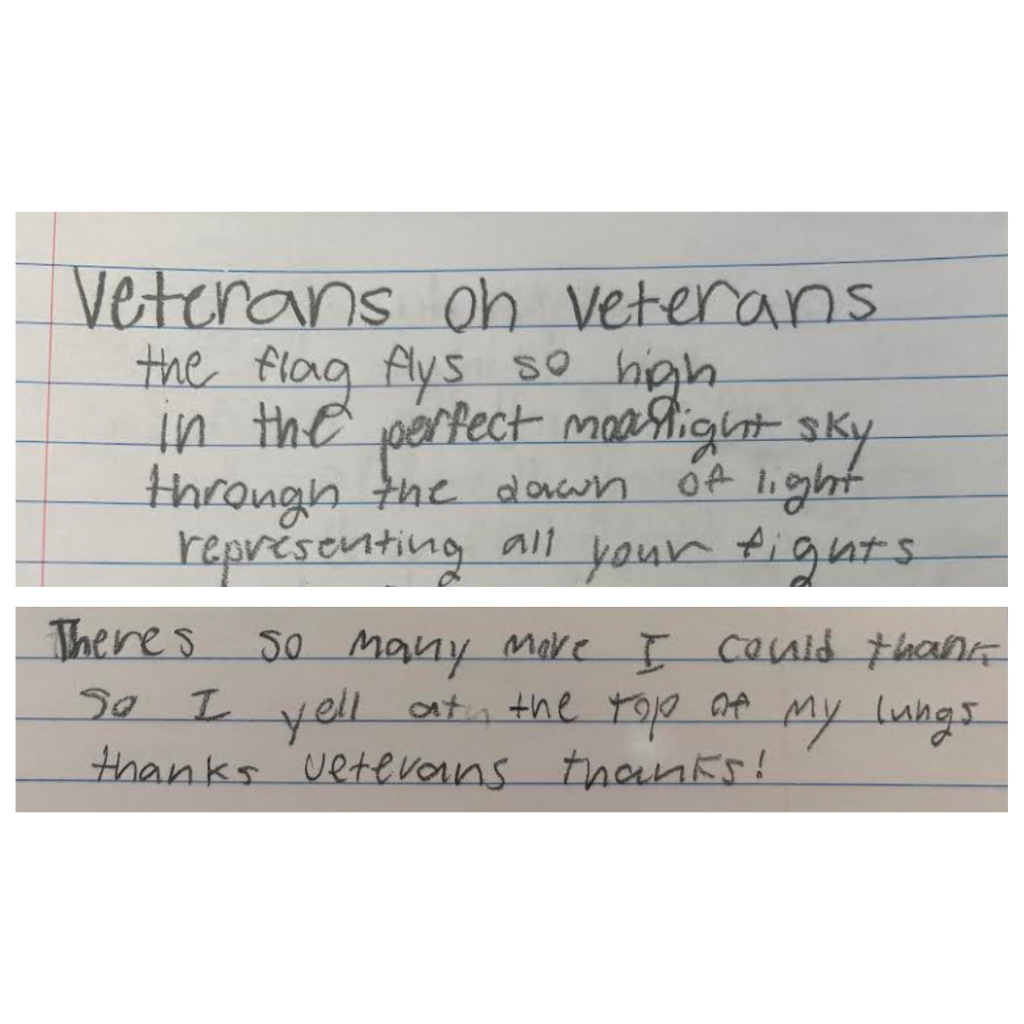 Veterans oh veterans
the flag flys so high
in the perfect moonlight sky
through the dawn of light
representing all your fights
Theres so many more I could thank
So I yell at the top of my lungs
thanks veterans thanks!